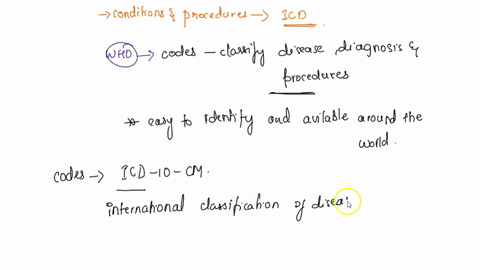 → conditions & procedures → ICD
WHO → codes - classify disease, diagnosis &
procedures
* easy to identify and avilable around the
world.
codes → ICD-10-CM.
international classification of diseas